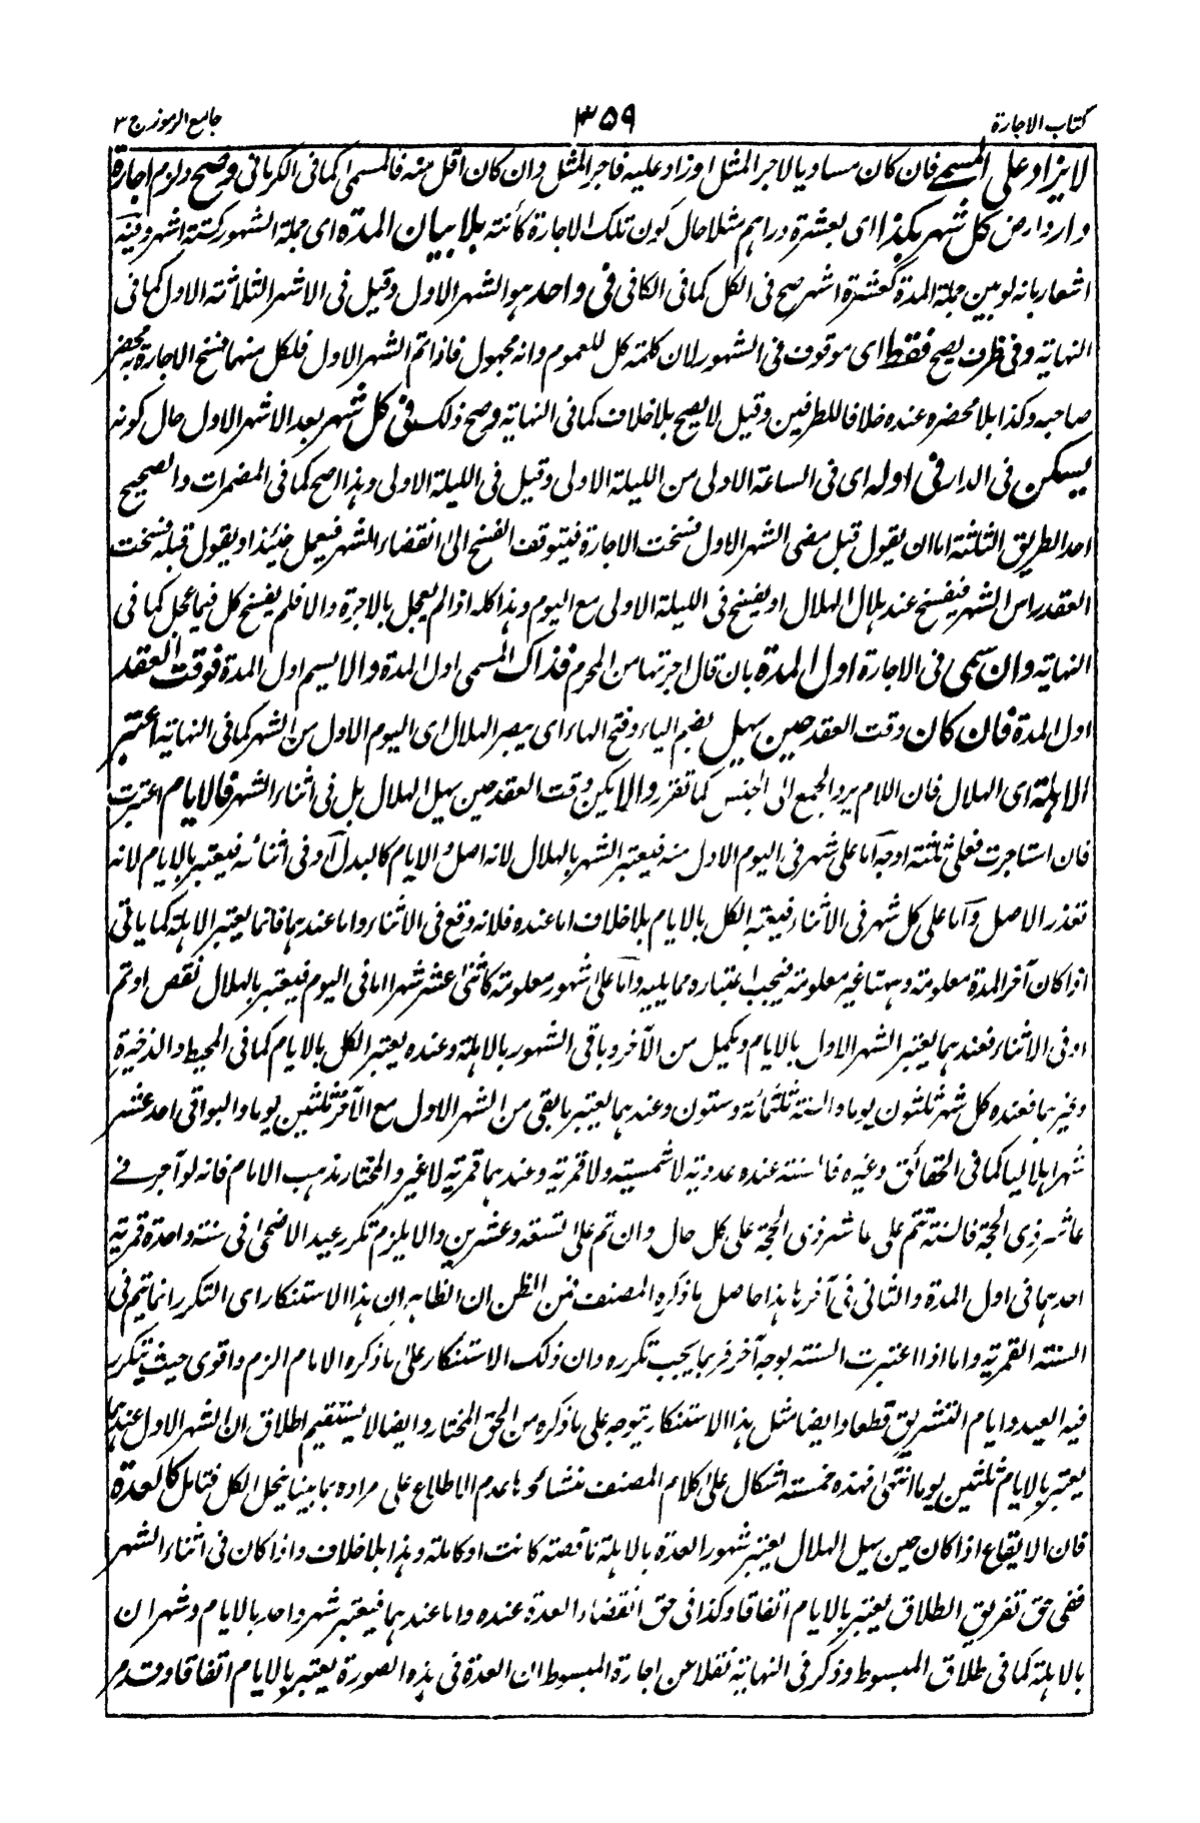 كتاب الاجارة
٣٥٩
جامع الرموز ج ٣
لا يزاد على المسمى فان كان مساويا لاجر المثل او زاد عليه فاجر المثل وان كان اقل منه فالمسمى كما فى الكرمانى وصح ولزم اجارة
دار وارض كل شهر بكذا اى بعشرة دراهم مثلا حال كون تلك الاجارة كائنة بلا بيان المدة اى جملة الشهور كستة اشهر وفيه
اشعار بانه لو بين جملة المدة كعشرة اشهر صح فى الكل كما فى الكافى فى واحد هو الشهر الاول وقيل فى الاشهر الثلاثة الاول كما فى
النهاية وفى ظرف يصح فقط اى موقوف فى الشهور لان كلمة كل للعموم وانه مجهول فاذا تم الشهر الاول فلكل منهما فسخ الاجارة بمحضر
صاحبه وكذا بلا محضره عنده خلافا للطرفين وقيل لا يصح بلا خلاف كما فى النهاية وصح ذلك فى كل شهر بعد الاشهر الاول حال كونه
يسكن فى الدار فى اوله اى فى الساعة الاولى من الليلة الاولى وقيل فى الليلة الاولى وهذا اصح كما فى المضمرات والصحيح
احد الطريق الثلثة اما ان يقول قبل مضى الشهر الاول فسخت الاجارة فيتوقف الفسخ الى انقضاء الشهر فيعمل حينئذ او يقول قبله فسخت
العقد راس الشهر فيفسخ عند هلال الهلال او يفسخ فى الليلة الاولى مع اليوم وهذا كله اذا لم يعجل بالاجرة والا فلم يفسخ كل فيما عجل كما فى
النهاية وان سمى فى الاجارة اول المدة بان قال اجرتها من المحرم فذاك المسمى اول المدة والا يسم اول المدة فوقت العقد
اول المدة فان كان وقت العقد حين يهل بضم الياء وفتح الهاء اى يبصر الهلال اى اليوم الاول من الشهر كما فى النهاية اعتبر
الاهلة اى الهلال فان اللام يرد الجمع الى الجنس كما تقرر والا يكن وقت العقد حين يهل الهلال بل فى اثناء الشهر فالايام اعتبرت
فان استاجرت فعلى ثلثة اوجه اما على شهر فى اليوم الاول منه فيعتبر الشهر بالهلال لانه اصل والايام كالبدل او فى اثنائه فيعتبر بالايام لانه
تعذر الاصل واما على كل شهر فى الاثناء فيعتبر الكل بالايام بلا خلاف اما عنده فلانه وقع فى الاثناء واما عندهما فانما يعتبر الاهلة كما ياتى
اذا كان آخر المدة معلومة وههنا غير معلومة فيجب اعتباره مما يليه واما على شهور معلومة كاثنى عشر شهرا اما فى اليوم فيعتبر بالهلال نقص او تم
او فى الاثناء فعندهما يعتبر الشهر الاول بالايام ويكمل من الآخر وباقى الشهور بالاهلة وعنده يعتبر الكل بالايام كما فى المحيط والذخيرة
وغيرهما فعنده كل شهر ثلثون يوما والسنة ثلثمائة وستون وعندهما يعتبر ما بقى من الشهر الاول مع الآخر ثلثين يوما والبواقى احد عشر
شهرا هلاليا كما فى الحقائق وغيره فالسنة عنده عددية لا شمسية ولا قمرية وعندهما قمرية لا غير والمختار مذهب الامام فانه لو آجر فى
عاشر ذى الحجة فالسنة تتم على عاشر ذى الحجة على كل حال وان تم على تسعة وعشرين والا يلزم تكرر عيد الاضحى فى سنة واحدة قمرية
احدهما فى اول المدة والثانى فى آخرها هذا حاصل ما ذكره المصنف فمن الظن ان الظاهر ان هذا الاستنكار اى التكرر انما يتم فى
السنة القمرية واما اذا اعتبرت السنة بوجه آخر فربما يجب تكرره وان ذلك الاستنكار على ما ذكره الامام الزم واقوى حيث يتكرر
فيه العيد وايام التشريق قطعا وايضا مثل هذا الاستنكار يتوجه على ما ذكره من الحق المختار وايضا لا يستقيم اطلاق ان الشهر الاول عندهما
يعتبر بالايام ثلثين يوما انتهى فهذه خمسة اشكال على كلام المصنف منشاؤها عدم الاطلاع على مراده بما بينا ينحل الكل فتامل كالعدة
فان الايقاع اذا كان حين يهل الهلال يعتبر شهور العدة بالاهلة ناقصة كانت او كاملة وهذا بلا خلاف واذا كان فى اثناء الشهر
ففى حق تفريق الطلاق يعتبر بالايام اتفاقا وكذا فى حق انقضاء العدة عنده واما عندهما فيعتبر شهر واحد بالايام وشهران
بالاهلة كما فى طلاق المبسوط وذكر فى النهاية نقلا عن اجارة المبسوط ان العدة فى هذه الصورة يعتبر بالايام اتفاقا وقدم